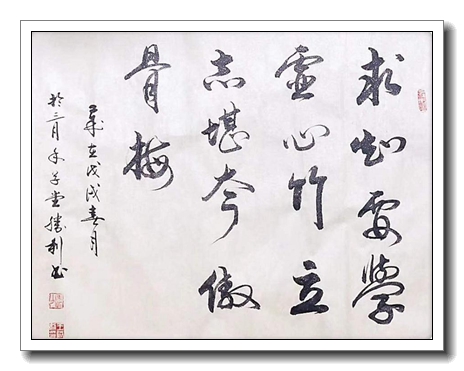 求知要學
虛心竹立
志堪夸傲
骨梅
歲在戊戌春月
於三月子堂勝利书